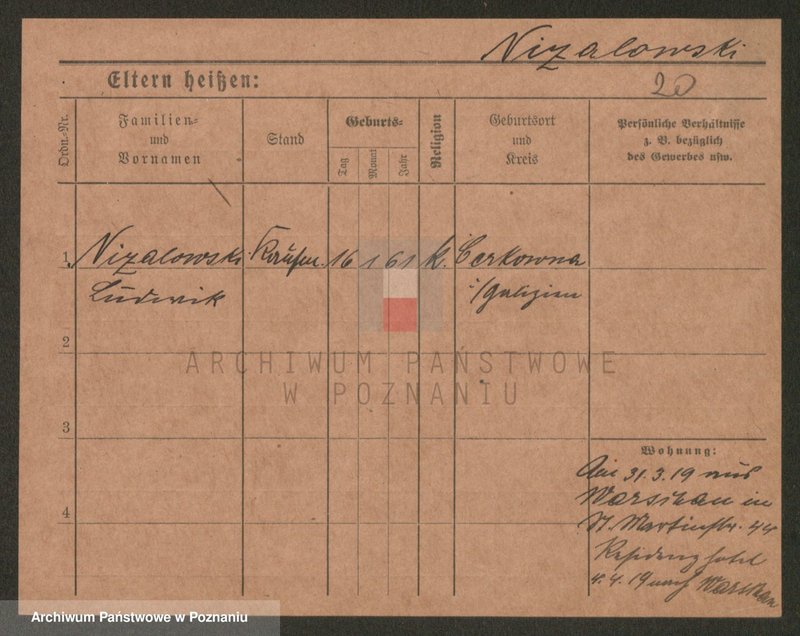 Nizalowski
20
Eltern heißen:
Ordn.-Nr.
Familien-
und
Vornamen
Stand
Geburts-
Tag
Monat
Jahr
Religion
Geburtsort
und
Kreis
Persönliche Verhältnisse
z. B. bezüglich
des Gewerbes usw.
1 Nizalowski Kaufm. 16 1 61 k. Cerkowna
Ludwik i/Galizien
2
3
4
ARCHIWUM PAŃSTWOWE
W POZNANIU
Wohnung:
Am 31.3.19 aus
Warschau in
St. Martinstr. 44
Residenz hotel
4.19 nach Warschau
Archiwum Państwowe w Poznaniu